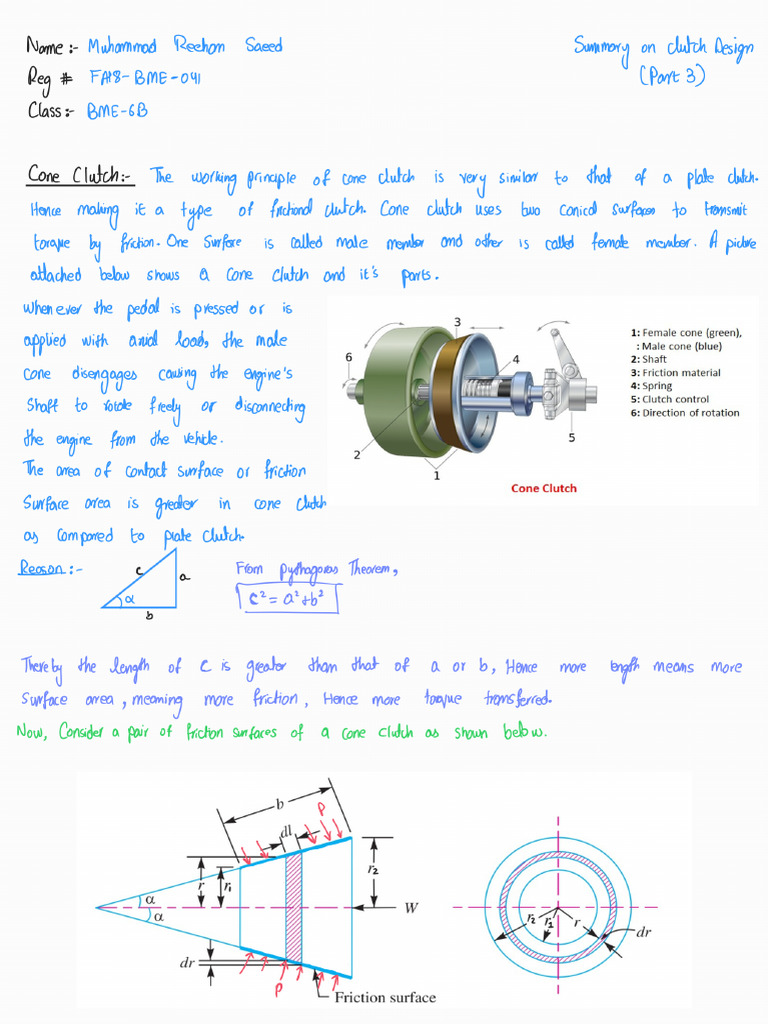 Name:- Muhammad Reehan Saeed
Summary on Clutch Design
(Part 3)
Reg # FA18-BME-041
Class:- BME-6B
Cone Clutch:- The working principle of cone clutch is very similar to that of a plate clutch.
Hence making it a type of frictional clutch. Cone clutch uses two conical surfaces to transmit
torque by friction. One Surface is called male member and other is called female member. A picture
attached below shows a Cone Clutch and it's parts.
Whenever the pedal is pressed or is
applied with axial load, the male
cone disengages causing the engine's
Shaft to rotate freely or disconnecting
the engine from the vehicle.
The area of contact surface or friction
Surface area is greater in cone clutch
as compared to plate clutch.
3
6
4
2
1
5
1: Female cone (green),
: Male cone (blue)
2: Shaft
3: Friction material
4: Spring
5: Clutch control
6: Direction of rotation
Cone Clutch
Reason:-
c
a
α
b
From pythagoras Theorem,
c² = a² + b²
Thereby the length of c is greater than that of a or b, Hence more length means more
Surface area, meaning more friction, Hence more torque transferred.
Now, Consider a pair of friction surfaces of a cone clutch as shown below.
b
P
dl
r
r1
r2
α
α
W
dr
P
Friction surface
r2
r1
r
dr